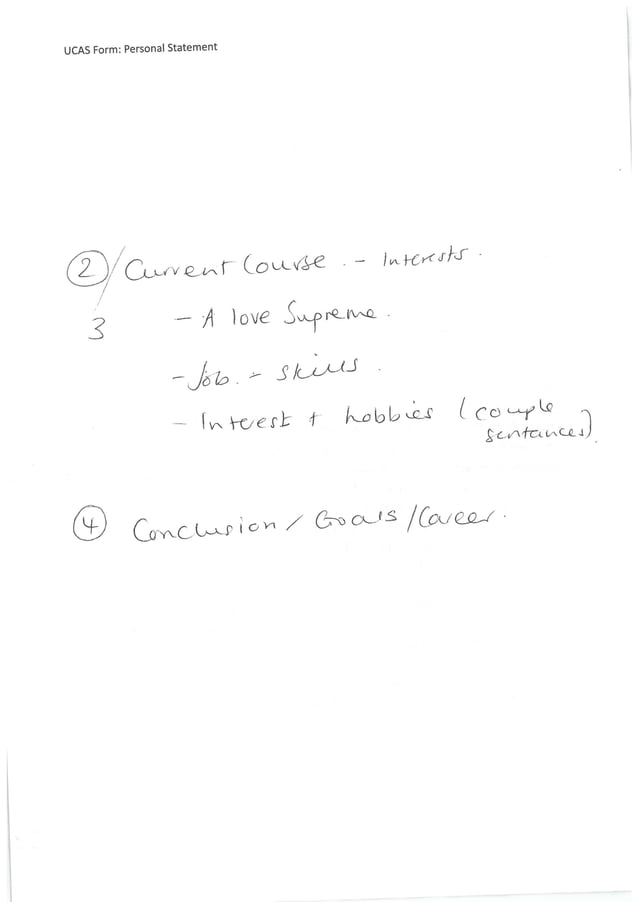 UCAS Form: Personal Statement
② / Current Course. - Interests.
3 - A love Supreme.
- Job. - Skills.
- Interest + hobbies (couple
sentances).
④ Conclusion / Goals / Career.